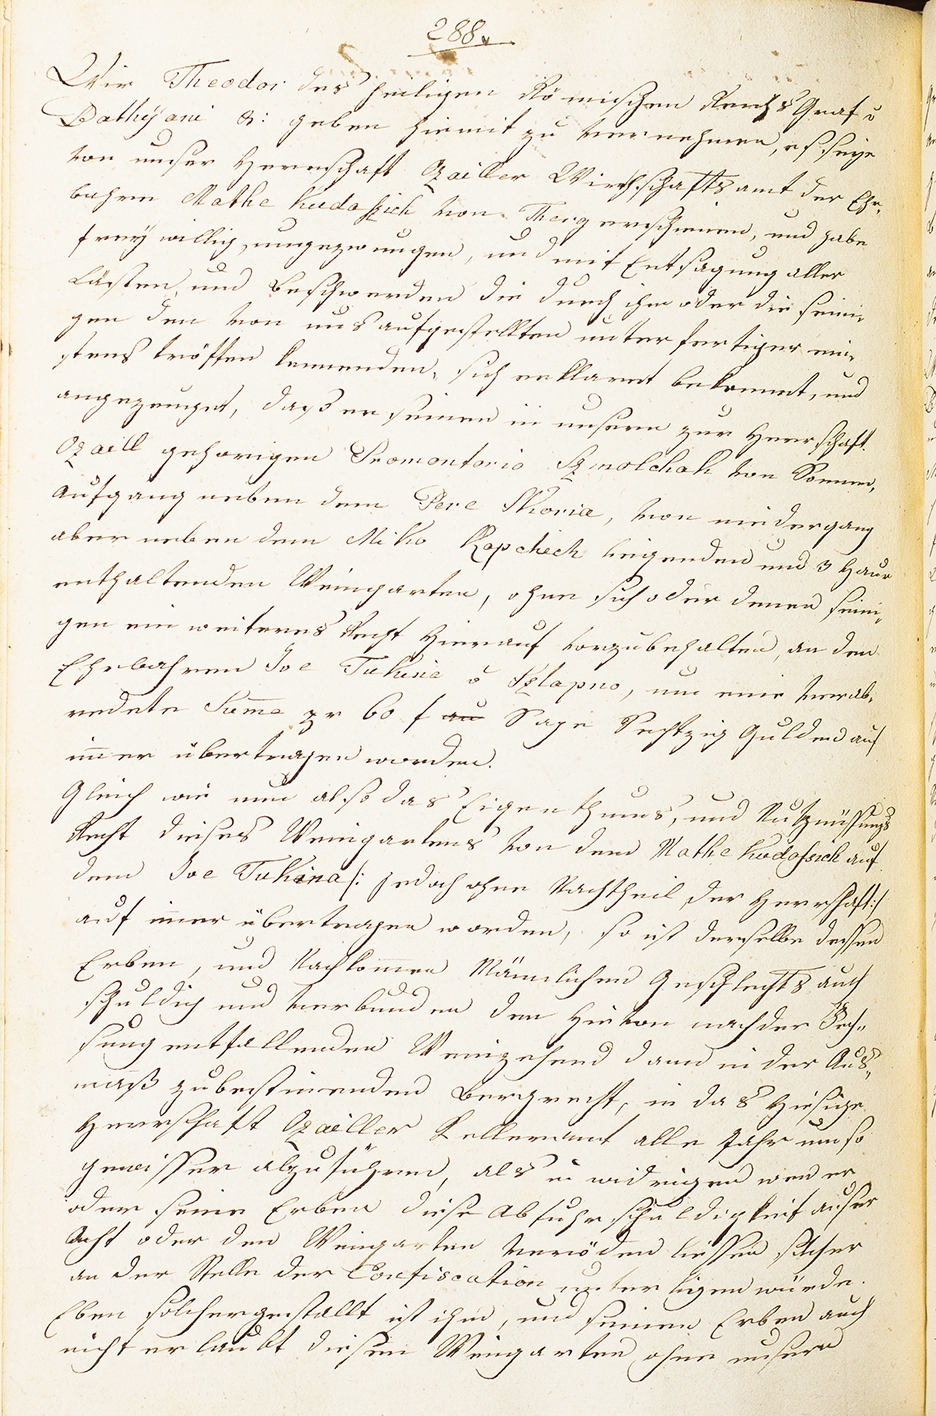 288.
Wir Theodor des heiligen Römischen Reichs Graf v
Bathÿani &: geben hiemit zu vernehmen, es seye
von unser Herrschaft Ozailler Wirthschaftsamt der Ehr,
bahre Mathe Kudassich von Therg erschienen, und habe
freÿ willig, ungezwungen, und mit Entsagung aller
Lästen, und Beschwerden die durch ihn oder die seini,
gen den von uns aufgestellten unterfertigten mei,
stens tröffen kennenden, sich erklärt bekennt, und
angezeuget, daß er seinen in unsern zur Herrschaft
Ozaill gehörigen Promontorio Szmolchak von Sonnen,
Aufgang neben dem Pere Skoria, von niedergang
aber neben dem Miko Kapcheck liegenden und 3 Hauer
enthaltenden Weingarten, ohne sich oder denen seini,
gen ein weiteres Recht hierauf vorzubehalten, an den
Ehrbahren Ive Tukina v Szlapno, um eine verab,
redete Suma pr 60 f Sage Sechzig Gulden auf
imer übertragen worden.
Gleich wie nun also das Eigenthums, und Nutznüssungs
Recht dieses Weingartens von dem Mathe Kudassich auf
dem Ive Tukina /: jedoch ohne Nachtheil der Herrschaft :/
auf imer übertragen worden, so ist derselbe dessen
Erben, und Nachkomen Mänlichen Geschlechts auch
schuldig und verbunden den hievon nach der Fech,
sung entfallenden Weinzehend dann in der Aus,
maß zubestimenden Bergrecht, in das hiesige
Herrschaft Ozailler Kelleramt alle Jahr um so
gewisser abzuführen, als in widrigen wen er
oder seine Erben diese Abfuhr schuldigkeit auser
Acht oder den Weingarten veröden liessen, solcher
an der Stelle der Confiscation unterligen würde.
Eben solchergestallt ist ihm, und seinen Erben auch
nicht erlaubt diesen Weingarten ohne unsern